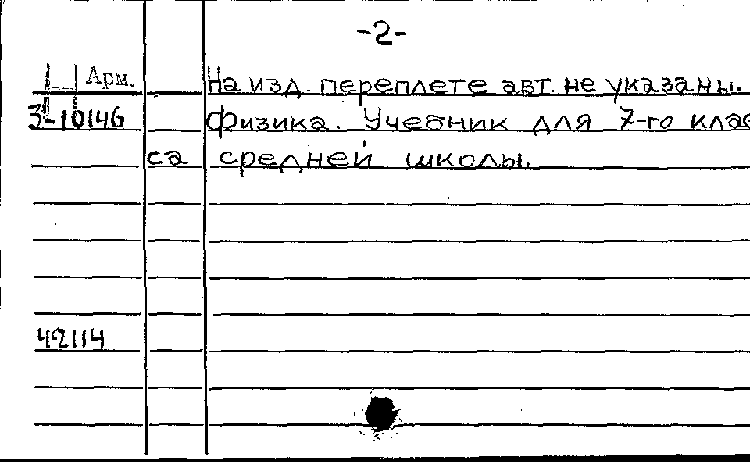 -2-
Арм. На изд. переплете авт. не указаны.
3-10146 Физика. Учебник для 7-го клас
са средней школы.
42114